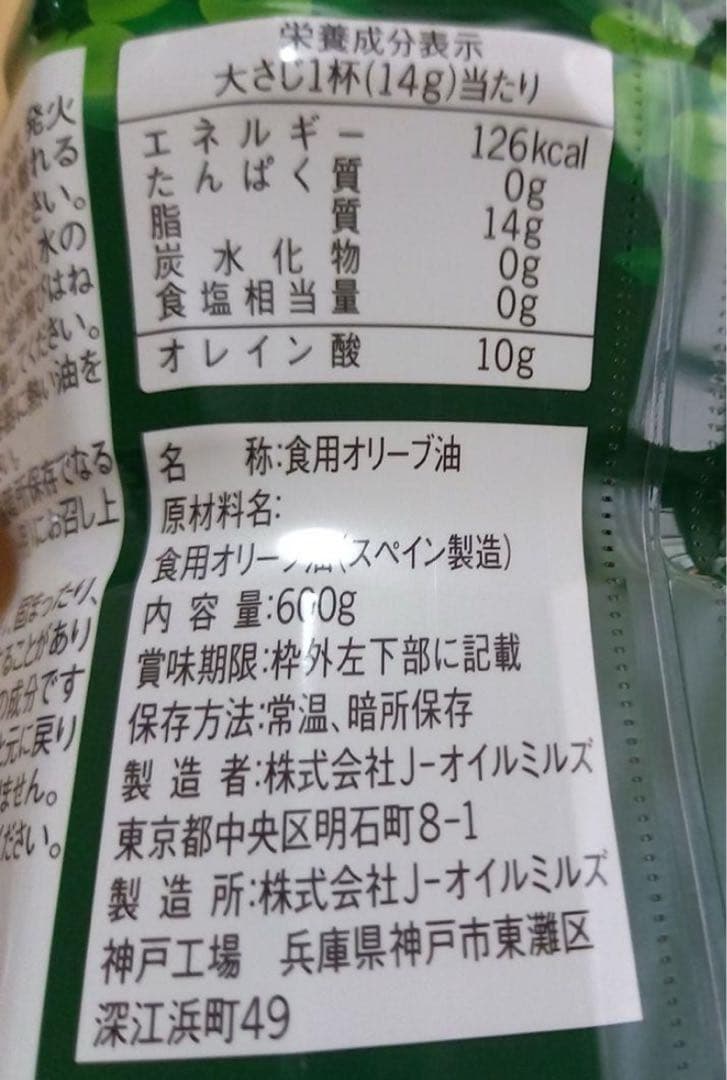 発火
れる
さい。
水の
はね
ください。
油を
保存でなる
にお召し上
固まったり、
ることがあり
の成分です
元に戻り
ません。
ださい。
栄養成分表示
大さじ1杯(14g)当たり
エネルギー 126kcal
たんぱく質 0g
脂質 14g
炭水化物 0g
食塩相当量 0g
オレイン酸 10g
名 称:食用オリーブ油
原材料名:
食用オリーブ油(スペイン製造)
内容量:600g
賞味期限:枠外左下部に記載
保存方法:常温、暗所保存
製造者:株式会社J-オイルミルズ
東京都中央区明石町8-1
製造所:株式会社J-オイルミルズ
神戸工場 兵庫県神戸市東灘区
深江浜町49